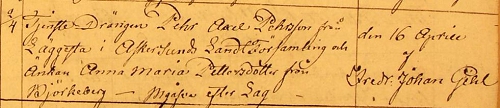 2/4 Tjenste Drängen Pehr Axel Pehrsson från
Läggesta i Askersunds Landsförsamling och
Änkan Anna Maria Pettersdotter från
Björkeberg — Mgafva efter Lag —
den 16 Aprill
af
Fredr: Johan Gihl